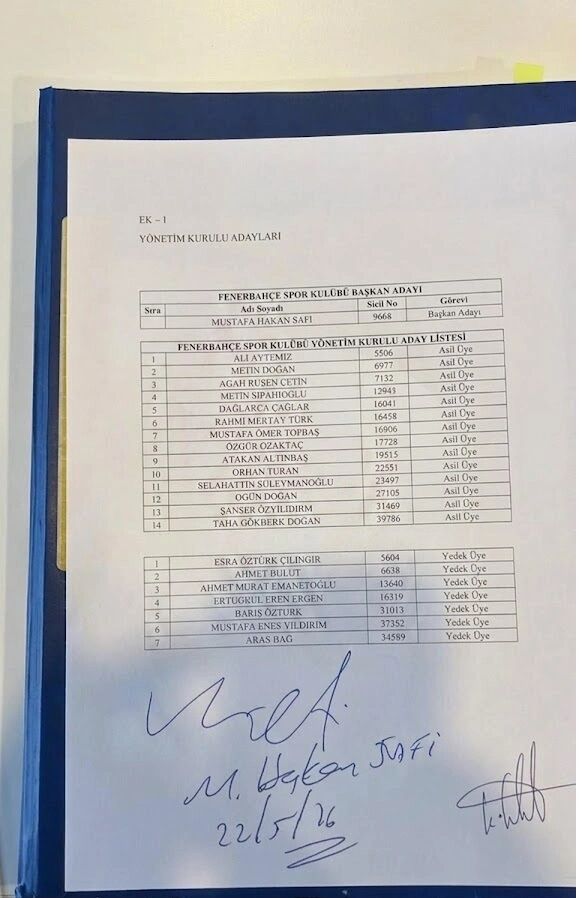 EK – 1
YÖNETİM KURULU ADAYLARI
FENERBAHÇE SPOR KULÜBÜ BAŞKAN ADAYI
Sıra Adı Soyadı Sicil No Görevi
MUSTAFA HAKAN SAFİ 9668 Başkan Adayı
FENERBAHÇE SPOR KULÜBÜ YÖNETİM KURULU ADAY LİSTESİ
1 ALİ AYTEMİZ 5506 Asil Üye
2 METİN DOĞAN 6977 Asil Üye
3 AGAH RUŞEN ÇETİN 7132 Asil Üye
4 METİN SİPAHİOĞLU 12943 Asil Üye
5 DAĞLARCA ÇAĞLAR 16041 Asil Üye
6 RAHMİ MERTAY TÜRK 16458 Asil Üye
7 MUSTAFA ÖMER TOPBAŞ 16906 Asil Üye
8 ÖZGÜR ÖZAKTAÇ 17728 Asil Üye
9 ATAKAN ALTINBAŞ 19515 Asil Üye
10 ORHAN TURAN 22551 Asil Üye
11 SELAHATTİN SÜLEYMANOĞLU 23497 Asil Üye
12 OGÜN DOĞAN 27105 Asil Üye
13 ŞANSER ÖZYILIDIRM 31469 Asil Üye
14 TAHA GÖKBERK DOĞAN 39786 Asil Üye
1 ESRA ÖZTÜRK ÇİLİNGİR 5604 Yedek Üye
2 AHMET BULUT 6638 Yedek Üye
3 AHMET MURAT EMANETOĞLU 13640 Yedek Üye
4 ERTUĞRUL EREN ERGEN 16319 Yedek Üye
5 BARIŞ ÖZTÜRK 31013 Yedek Üye
6 MUSTAFA ENES YILDIRIM 37352 Yedek Üye
7 ARAS BAĞ 34589 Yedek Üye
M. Hakan SAFİ
22/5/26